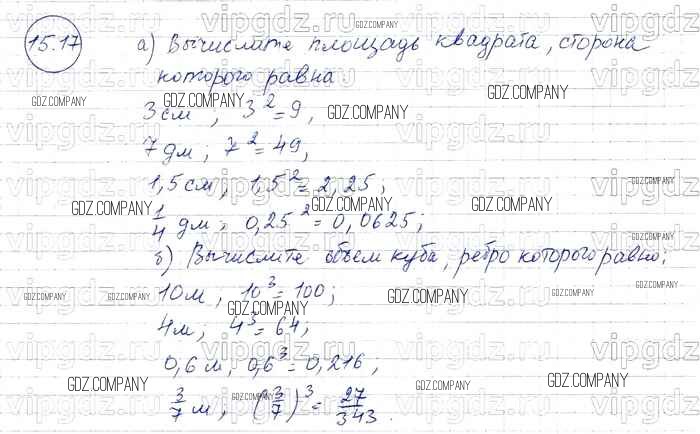 15.17 а) Вычислите площадь квадрата, сторона
которого равна.
3 см, 3² = 9,
7 дм; 7² = 49,
1,5 см, 1,5² = 2,25;
1/4 дм; 0,25² = 0,0625;
б) Вычислите объем куба, ребро которого равно;
10 м, 10³ = 100;
4 м; 4³ = 64;
0,6 м, 0,6³ = 0,216;
3/7 м, (3/7)³ = 27/343.
GDZ.COMPANY
vipgdz.ru